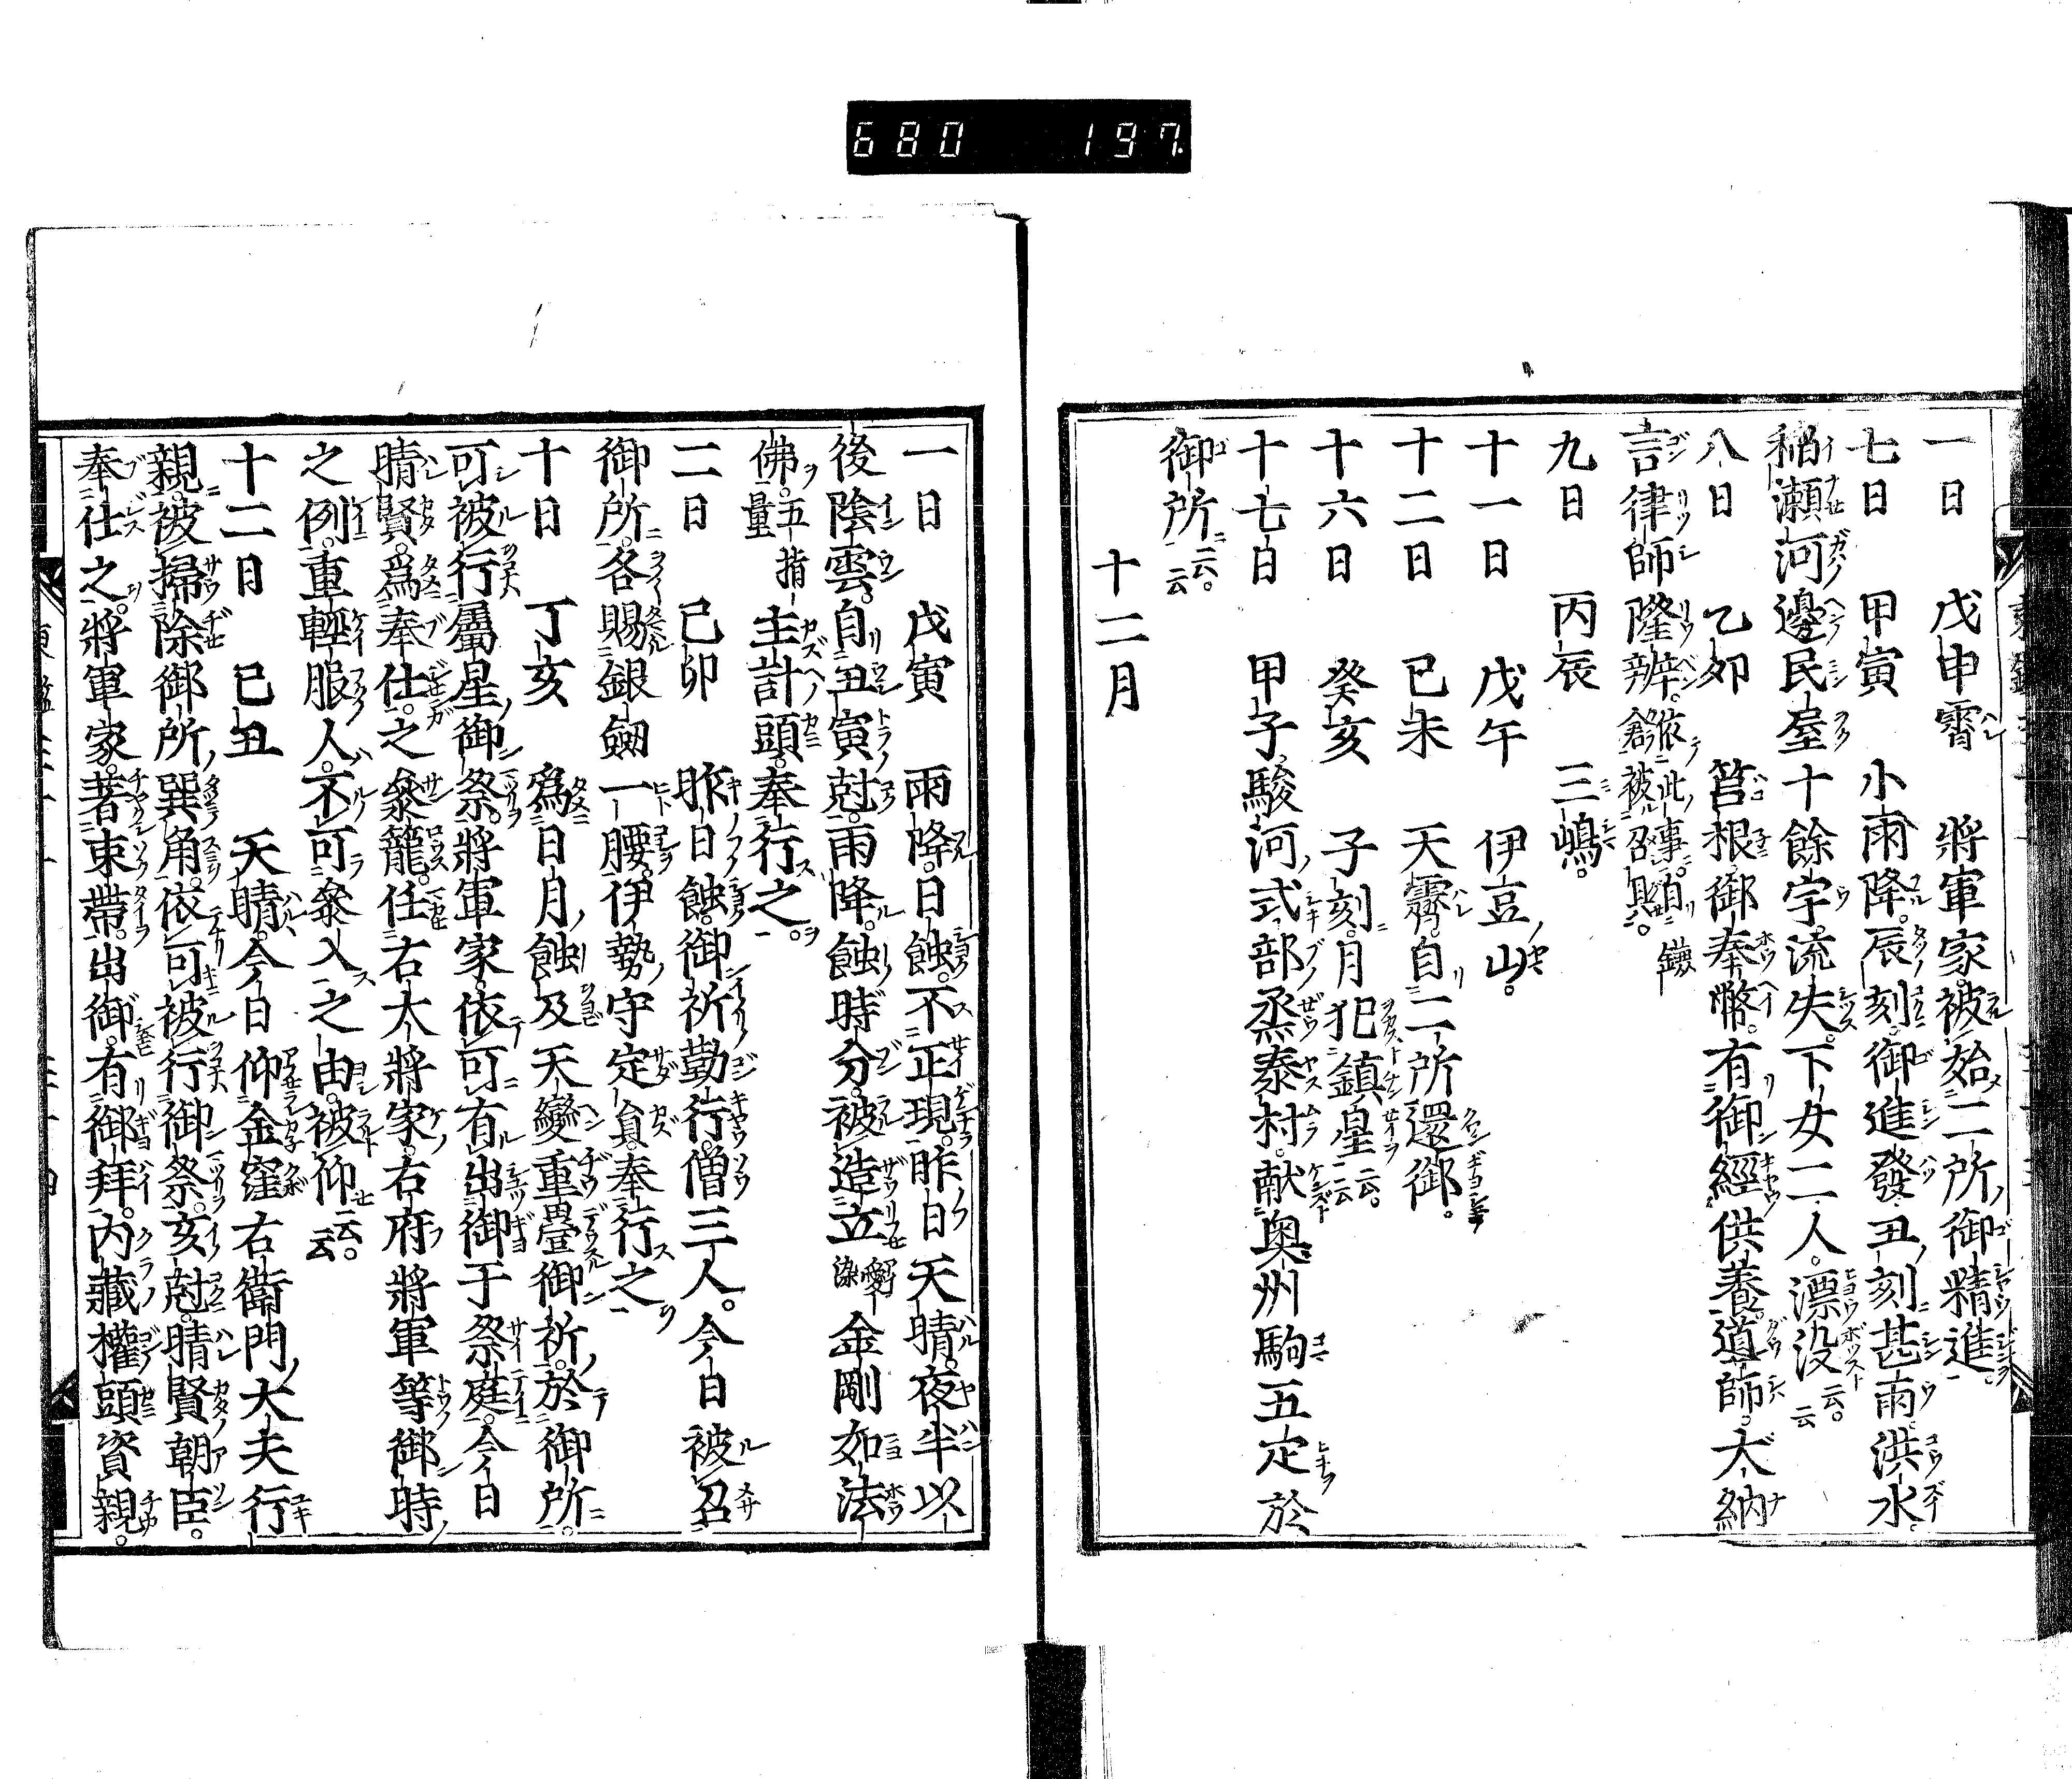 680 197
一日 戊申霽 將軍家被始二所御精進
七日 甲寅 小雨降。辰刻。御進發。丑刻甚雨。洪水。
稲瀬河邊民屋十餘宇流失。下女二人。漂没云云。
八日 乙卯 筥根御奉幣。有御經供養。導師。大納
言律師隆辨。依此事。自鎌倉被召具。
九日 丙辰 三嶋。
十一日 戊午 伊豆山。
十二日 己未 天霽。自二所還御。
十六日 癸亥 子刻月犯鎮星云云。
十七日 甲子駿河式部烝泰村。献奥州駒五疋於
御所云云。
十二月
一日 戊寅 雨降。日蝕。不正現。昨日天晴。夜半以
後陰雲。自丑寅尅。雨降。蝕時分。被造立愛染金剛如法
佛。五指量 主計頭。奉行之。
二日 己卯 昨日蝕。御祈勤行。僧三人。今日被召
御所。各賜銀劔一腰。伊勢守定員奉行之
十日 丁亥 爲日月蝕及天變重疊御祈。於御所。
可被行屬星御祭。將軍家。依可有出御于祭庭。今日
晴賢。爲奉仕。之參籠。任右大將家。右府將軍等御時
之例。重輕服人。不可參入之由。被仰云云。
十二日 己丑 天晴。今日仰金窪右衞門大夫行
親。被掃除御所巽角。依可被行御祭。亥尅。晴賢朝臣。
奉仕之。將軍家。著束帶。出御。有御拜。内藏權頭資親。